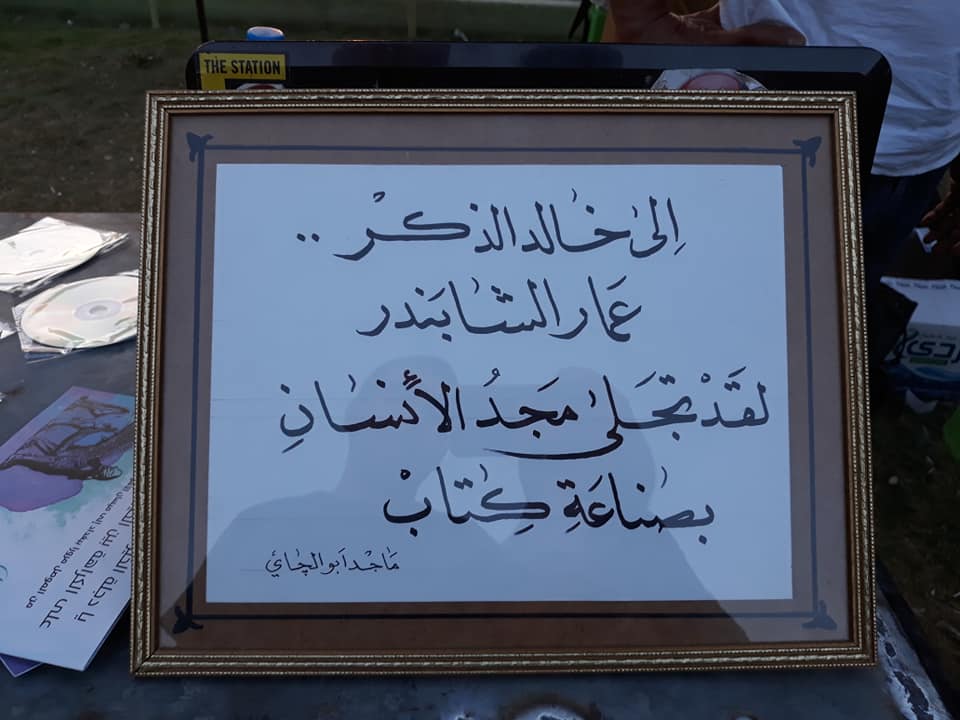 THE STATION
إلىٰ خالد الذكْر ..
عمار الشابَندر
لقَدْ تجَلىٰ مجَدُ الأَنسانِ
بصناعَةِ كِتابْ
مَاجْد أَبو الچاي